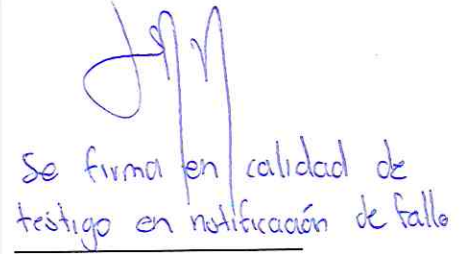 Se firma en calidad de
testigo en notificación de fallo